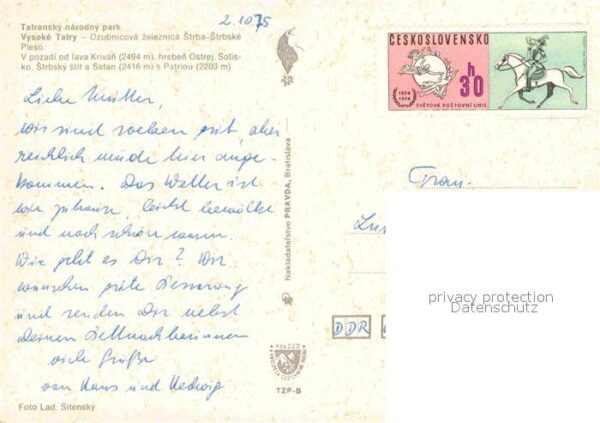 2.10.75
Tatranský národný park
Vysoké Tatry – Ozubnicová železnica Štrba-Štrbské
Pleso
V pozadí od ľava Kriváň (2494 m), hrebeň Ostrej, Solis-
ko, Štrbský štít a Satan (2416 m) s Patriou (2203 m)
Liebe Mutter,
wir sind soeben gut, aber
reichlich müde hier ange-
kommen. Das Wetter ist
wie zuhause, leicht bewölkt
und noch schön warm.
Wie geht es Dir? Wir
wünschen gute Besserung
und senden Dir nebst
Deinen Bettnachbarinnen
viele Grüße
von Hans und Hedwig
Foto Lad. Sitenský
Nakladateľstvo PRAVDA, Bratislava
TZP-B
ČESKOSLOVENSKO
h
30
1874
1974
SVĚTOVÁ POŠTOVNÍ UNIE
Frau
DDR
privacy protection
Datenschutz